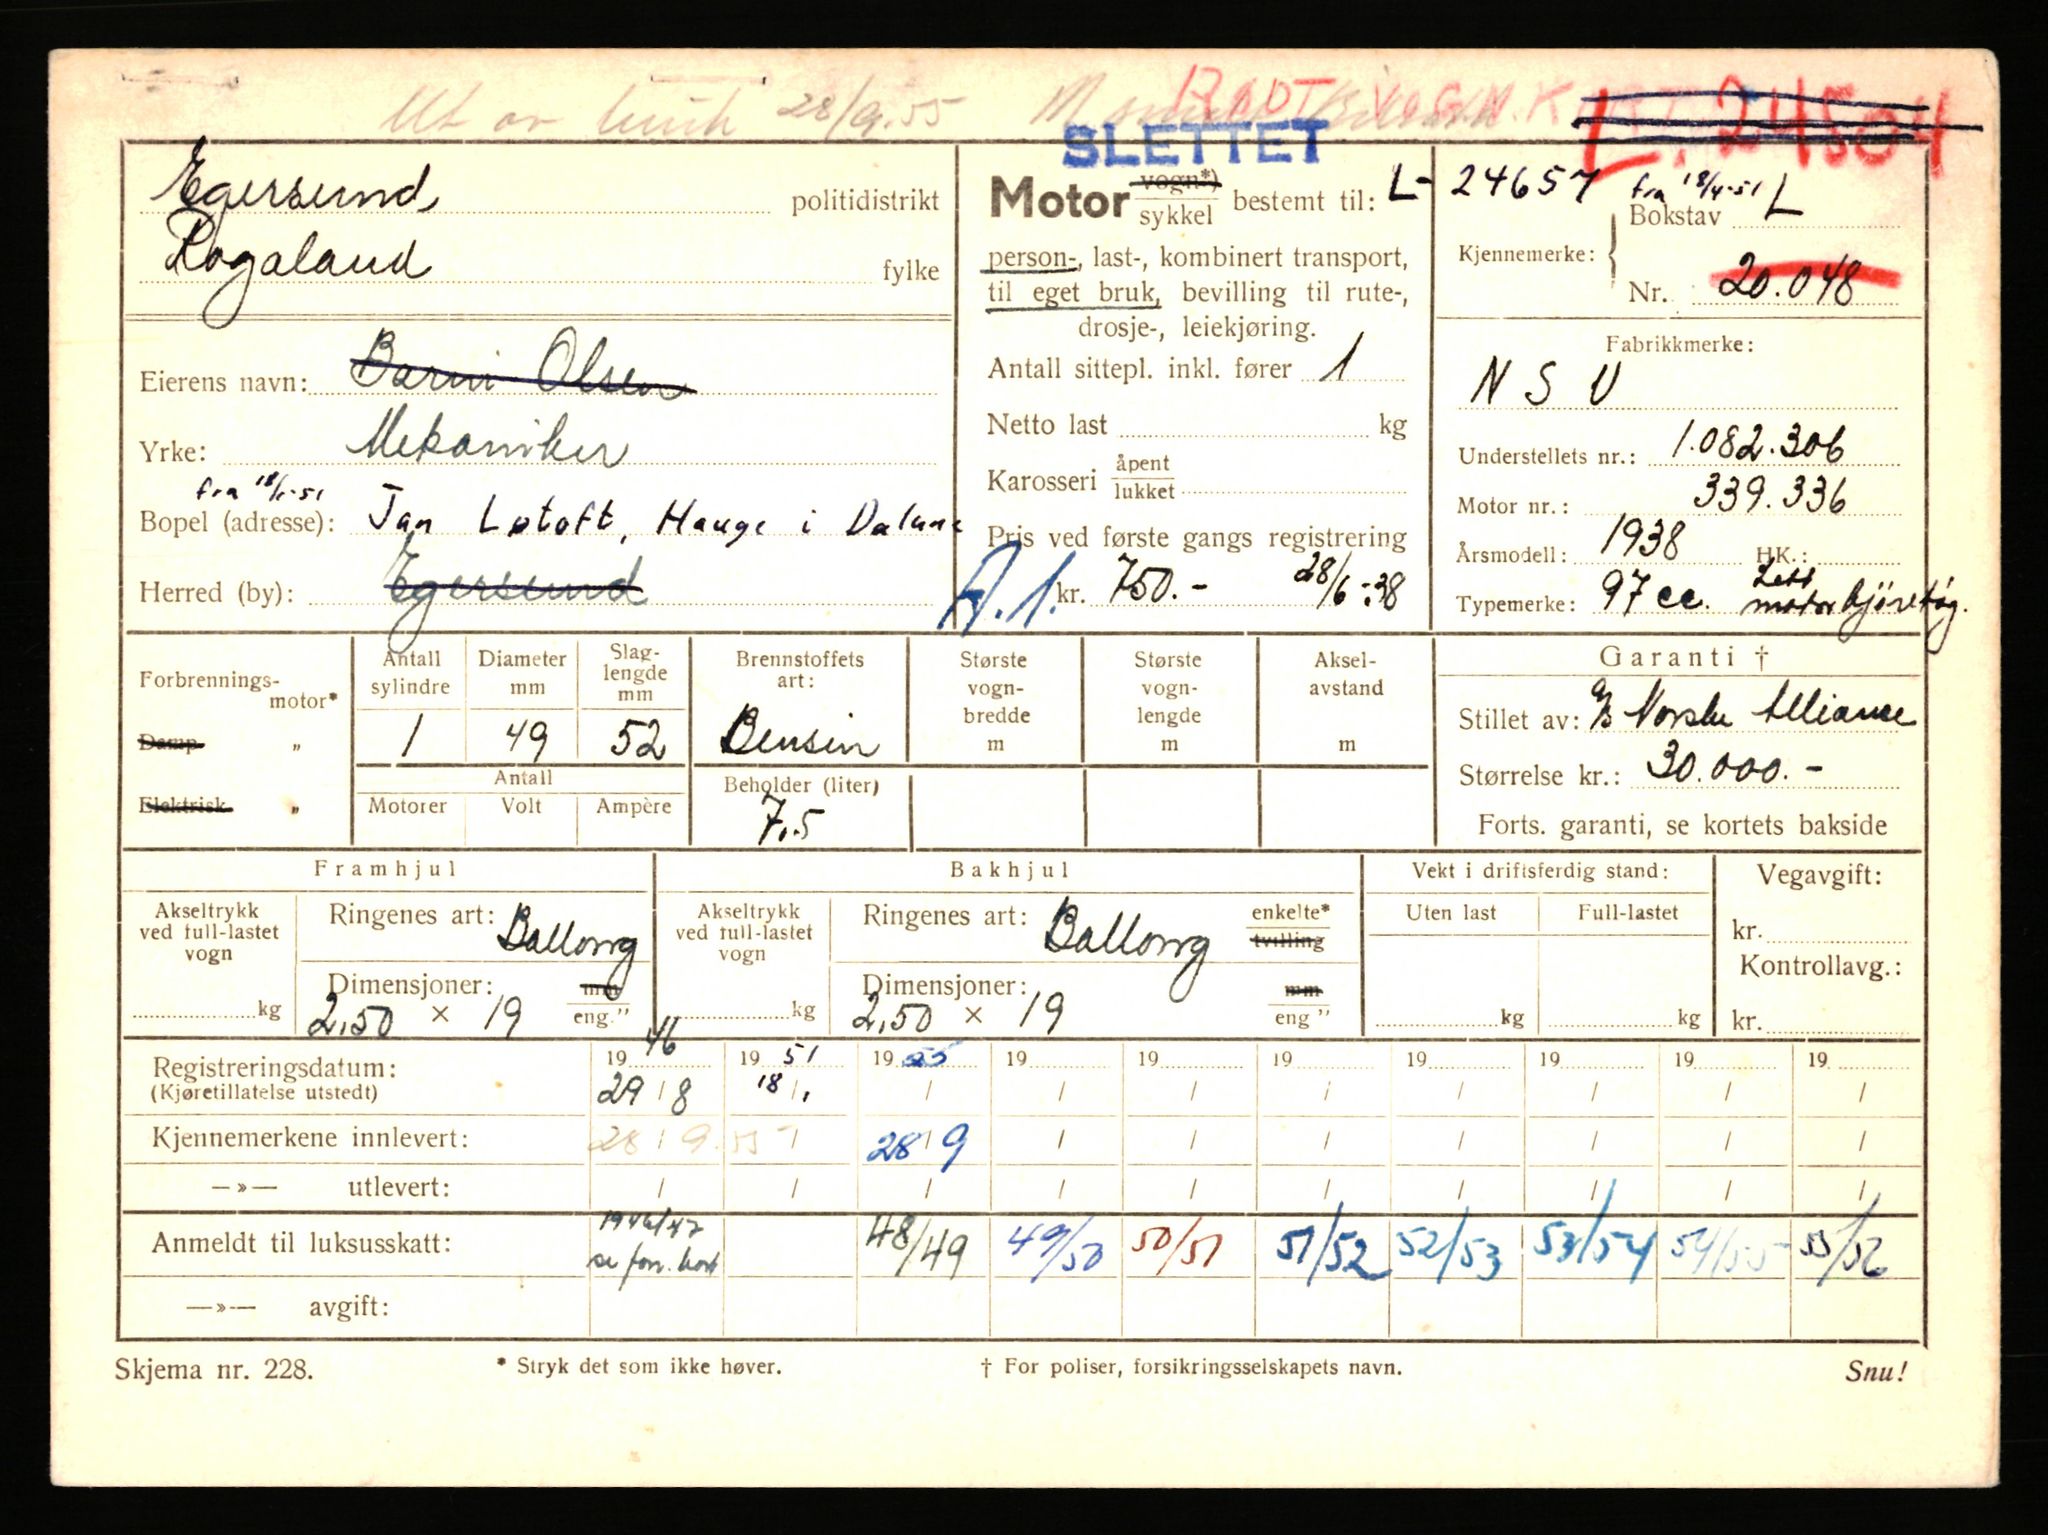 Ut av bruk 28/9.55 RØDT VOGN.K L. 24504
SLETTET
Egersund, politidistrikt
Rogaland fylke
Eierens navn: Barni Olsen
Yrke: Mekaniker
fra 18/1-51
Bopel (adresse): Jan Løtoft, Hauge i Dalane
Herred (by): Egersund
Motor vogn*) sykkel bestemt til: L- 24657 fra 18/4-51
person-, last-, kombinert transport,
til eget bruk, bevilling til rute-,
drosje-, leiekjøring.
Antall sittepl. inkl. fører 1
Netto last kg
Karosseri åpent lukket
Pris ved første gangs registrering
A.1. kr. 750.- 28/6-38
Kjennemerke: Bokstav L
Nr. 20.048
Fabrikkmerke:
N S U
Understellets nr.: 1.082.306
Motor nr.: 339.336
Årsmodell: 1938 HK.:
Typemerke: 97 cc. Lett motorkjøretøg.
Forbrennings-motor*
Damp „
Elektrisk „
Antall sylindre 1
Diameter mm 49
Slag-lengde mm 52
Antall
Motorer Volt Ampère
Brennstoffets art: Bensin
Beholder (liter) 7.5
Største vogn-bredde m
Største vogn-lengde m
Aksel-avstand m
Garanti †
Stillet av: A/S Norske Alliance
Størrelse kr.: 30.000.-
Forts. garanti, se kortets bakside
Framhjul
Akseltrykk ved full-lastet vogn kg
Ringenes art: Ballong
Dimensjoner: mm
2,50 × 19 eng.”
Bakhjul
Akseltrykk ved full-lastet vogn kg
Ringenes art: Ballong enkelte* tvilling
Dimensjoner: mm
2,50 × 19 eng ”
Vekt i driftsferdig stand:
Uten last Full-lastet
kg kg
Vegavgift:
kr.
Kontrollavg.:
kr.
Registreringsdatum: 19 46 19 51 19 55 19 19 19 19 19 19 19
(Kjøretillatelse utstedt) 29 / 8 18 / 1. / / / / / / / /
Kjennemerkene innlevert: 28 / 9.55 / 28 / 9 / / / / / / /
—»— utlevert: / / / / / / / / / /
Anmeldt til luksusskatt: 1946/47 se forr. kort 48/49 49/50 50/51 51/52 52/53 53/54 54/55 55/56
—»— avgift:
Skjema nr. 228. * Stryk det som ikke høver. † For poliser, forsikringsselskapets navn. Snu!